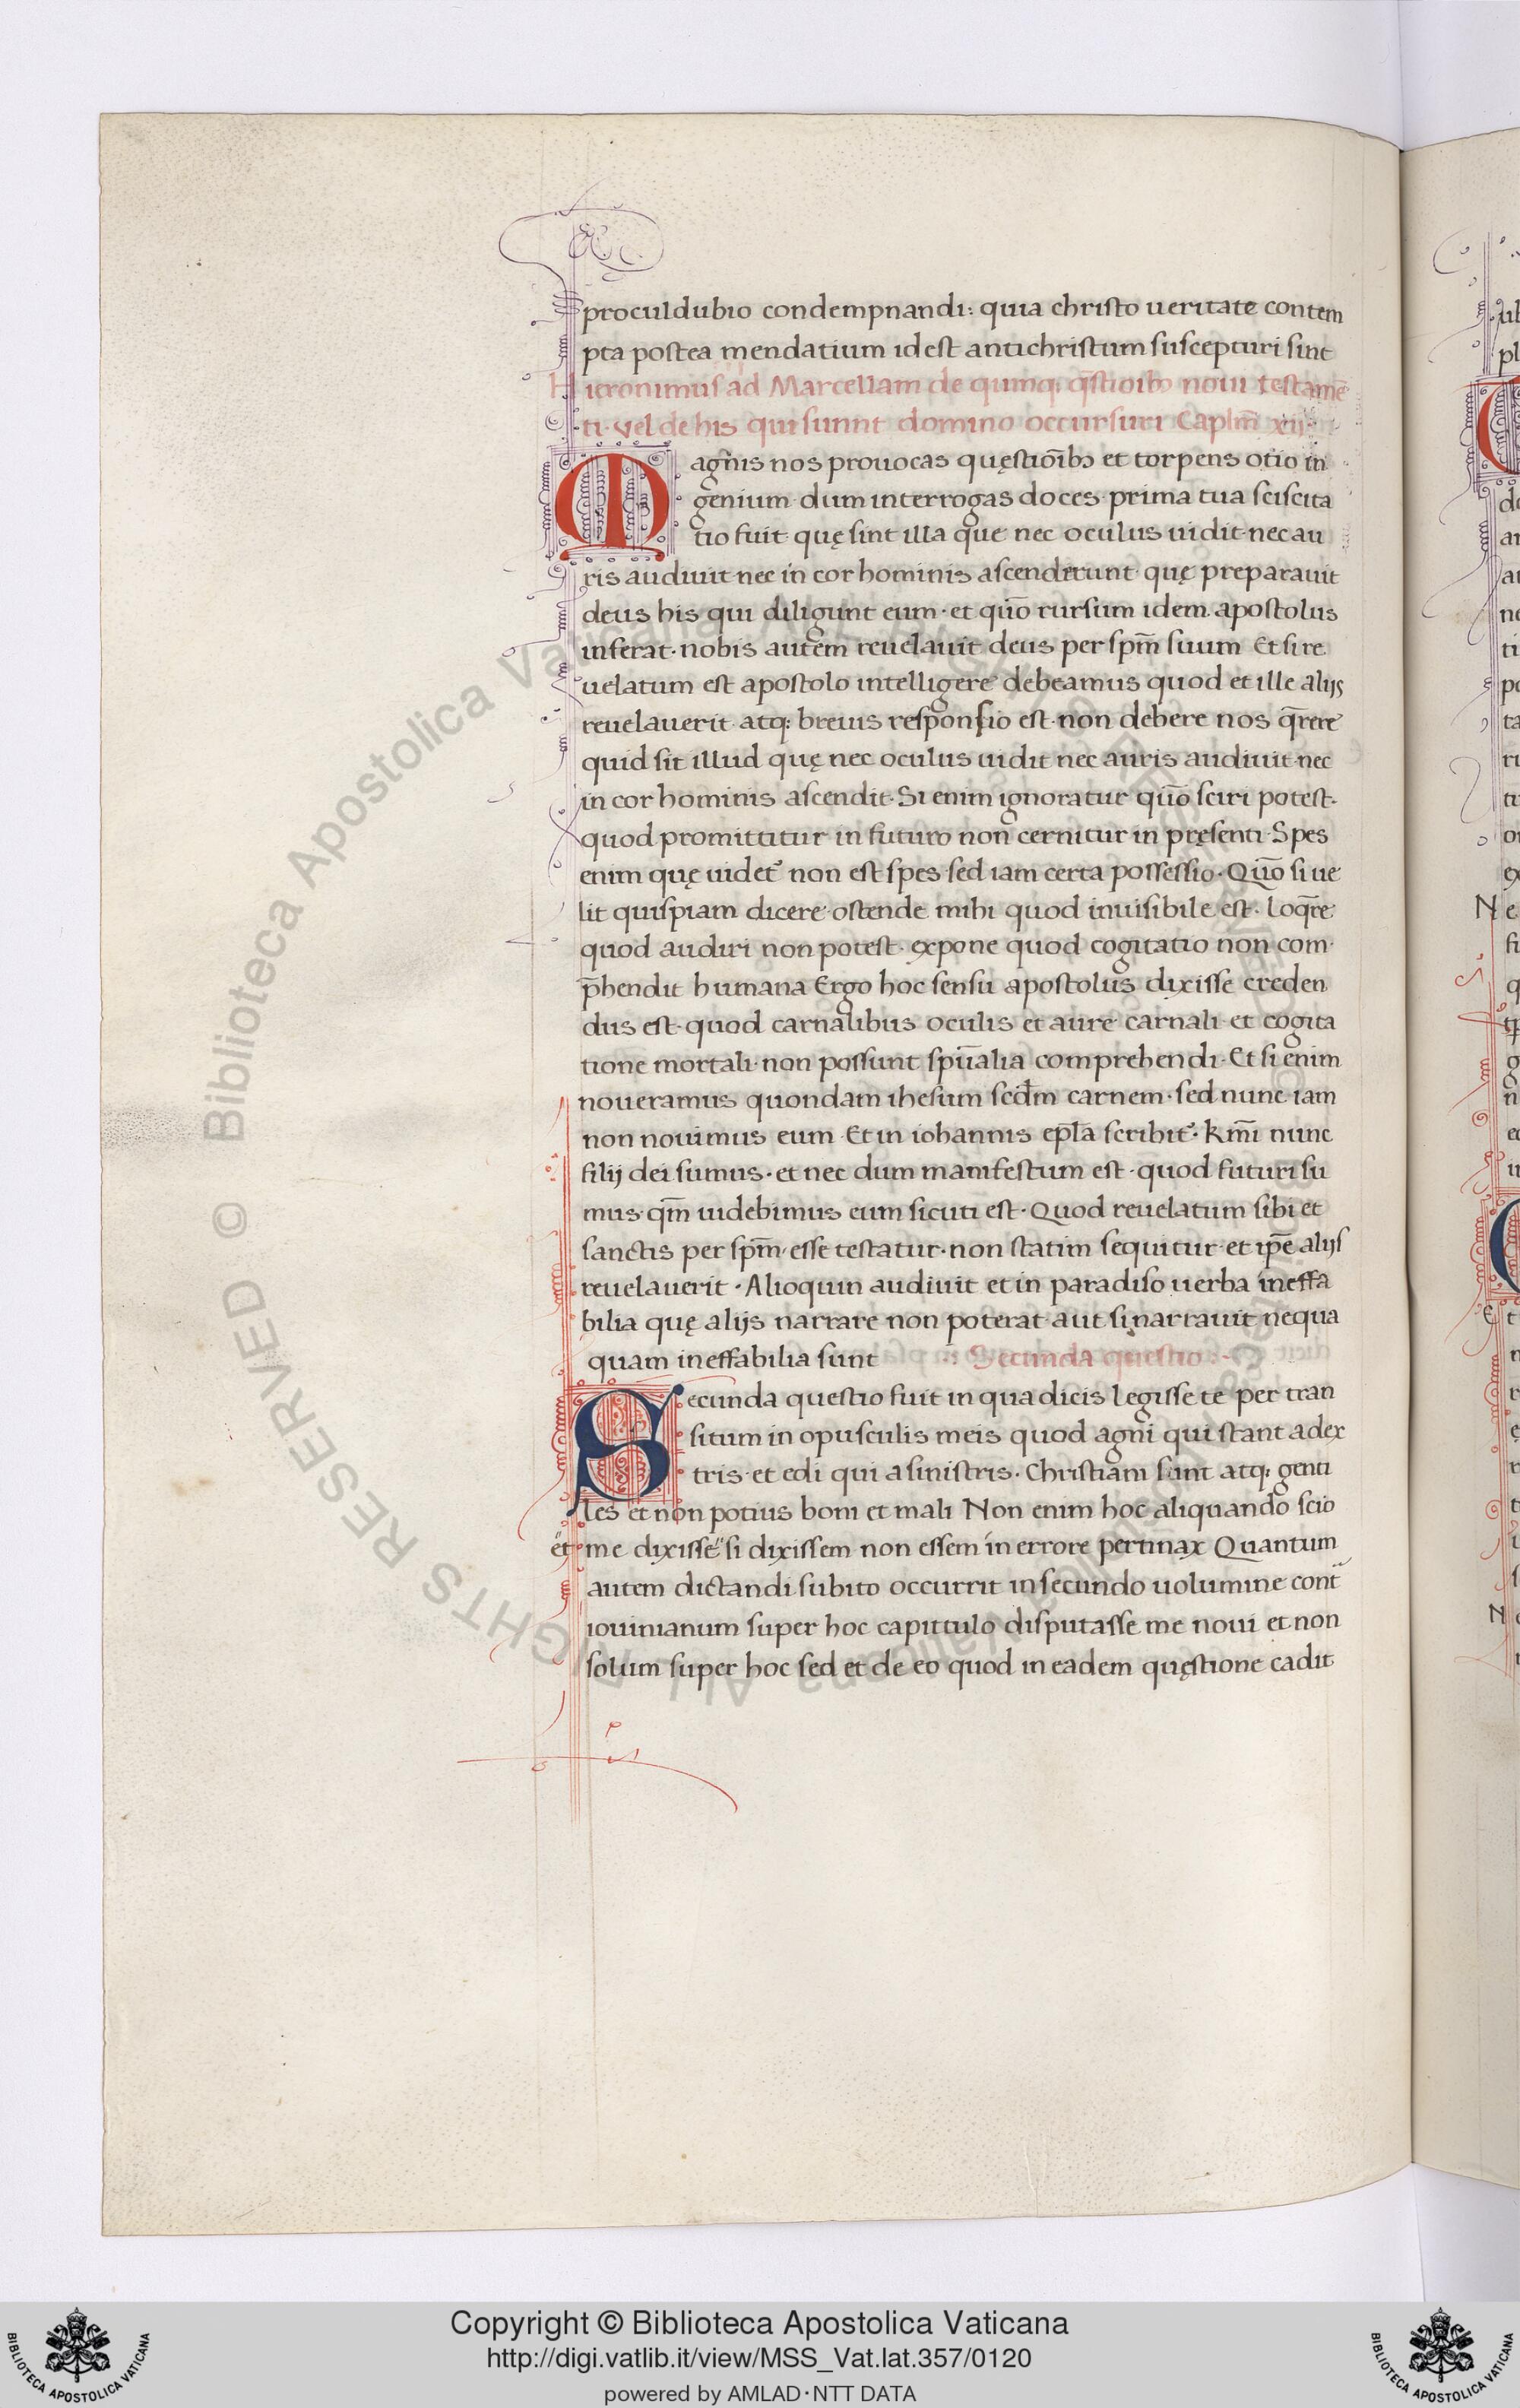 proculdubio condempnandi: quia christo ueritate contem
pta postea mendatium idest antichristum suscepturi sint
Hieronimus ad Marcellam de quinq; q̄stioibꝫ noui testamē
ti. vel de his qui sunnt domino occursuri Caplm̄ xii
Magnis nos prouocas quęstioībꝫ et torpens otio in
genium dum interrogas doces prima tua sciscita
tio fuit quę sint illa que nec oculus uidit nec au
ris audiuit nec in cor hominis ascenderunt quę preparauit
deus his qui diligunt eum · et quō rursum idem apostolus
inferat · nobis autem reuelauit deus per sp̄m suum Et si re
uelatum est apostolo intelligere debeamus quod et ille alijs
reuelauerit atq; breuis responsio est · non debere nos q̄rere
quid sit illud quę nec oculus uidit nec auris audiuit nec
in cor hominis ascendit · Si enim ignoratur quō sciri potest ·
quod promittitur in futuro non cernitur in pręsenti · Spes
enim quę uidet᷑ non est spes sed iam certa possessio · Quō si ue
lit quispiam dicere · ostende mihi quod inuisibile est · loq̄re
quod audiri non potest · expone quod cogitatio non com
p̄hendit humana Ergo hoc sensu apostolus dixisse creden
dus est · quod carnalibus oculis et aure carnali et cogita
tione mortali · non possunt spūalia comprehendi · Et si enim
noueramus quondam ihesum scd̄m carnem · sed nunc iam
non nouimus eum Et in iohannis ep̄la scribit᷑ · kmī nunc
filij dei sumus · et nec dum manifestum est · quod futuri su
mus · qm̄ uidebimus eum sicuti est · Quod reuelatum sibi et
sanctis per sp̄m esse testatur · non statim sequitur et ip̄e alijs
reuelauerit · Alioquin audiuit et in paradiso uerba ineffa
bilia quę alijs narrare non poterat aut si narrauit nequa
quam ineffabilia sunt Secunda questio
Secunda questio fuit in qua dicis legisse te per tran
situm in opusculis meis quod agni qui stant adex
tris et edi qui a sinistris · Christiani sunt atq; genti
les et non potius boni et mali Non enim hoc aliquando scio
et me dixisse si dixissem non essem in errore pertinax Quantum
autem dictandi subito occurrit in secundo uolumine cont̄
iouinianum super hoc capittulo disputasse me noui et non
solum super hoc sed et de eo quod in eadem quęstione cadit
© Biblioteca Apostolica Vaticana ALL RIGHTS RESERVED
Copyright © Biblioteca Apostolica Vaticana
http://digi.vatlib.it/view/MSS_Vat.lat.357/0120
powered by AMLAD·NTT DATA
BIBLIOTECA APOSTOLICA VATICANA
BIBLIOTECA APOSTOLICA VATICANA